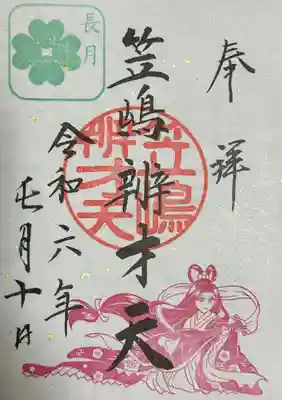 長月
奉拝
笠嶋辨才天
笠嶋
辨才天
令和六年
長月十日